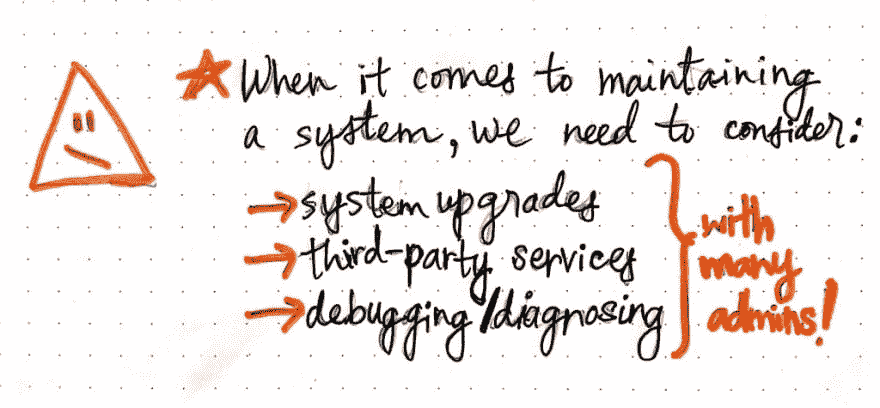 When it comes to maintaining
a system, we need to consider:
→ system upgrades
→ third-party services
→ debugging/diagnosing
with
many
admins!